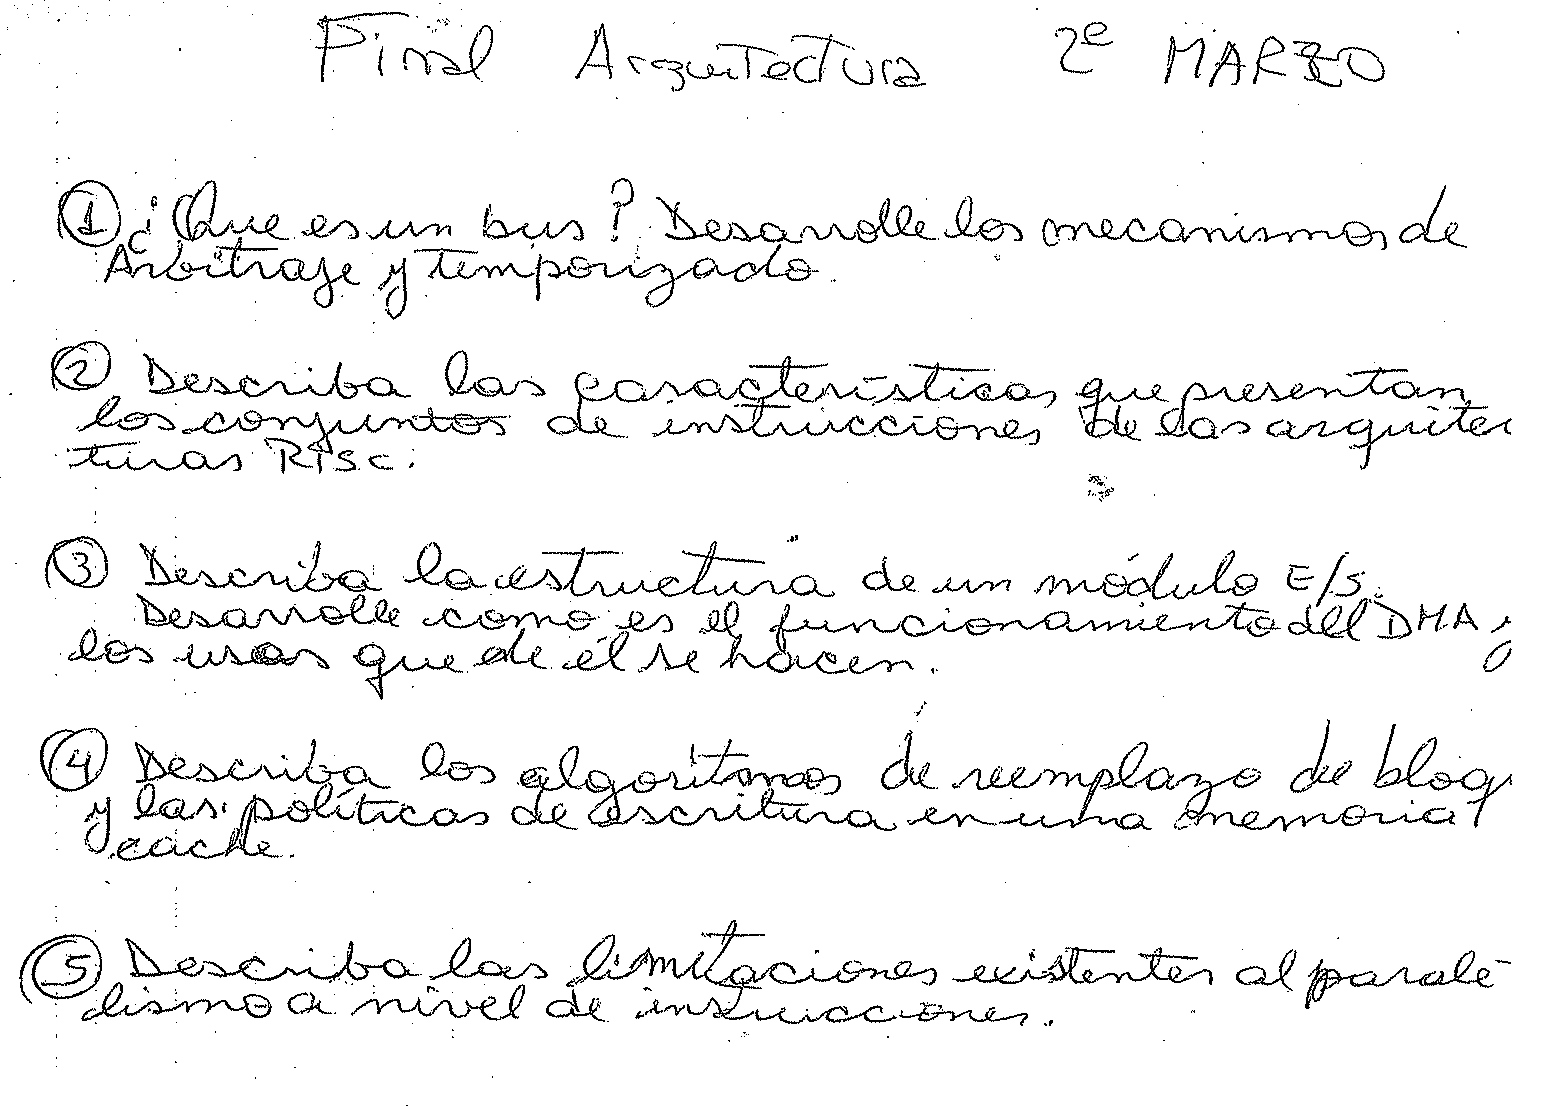 Final Arquitectura 2º MARZO
① ¿Que es un bus? Desarrolle los mecanismos de
Arbitraje y temporizado.
② Describa las características que presentan
los conjuntos de instrucciones de las arquitec
turas RISC.
③ Describa la estructura de un módulo E/S.
Desarrolle como es el funcionamiento del DMA y
los usos que de él se hacen.
④ Describa los algoritmos de reemplazo de bloq
y las políticas de escritura en una memoria
cache.
⑤ Describa las limitaciones existentes al parale-
lismo a nivel de instrucciones.